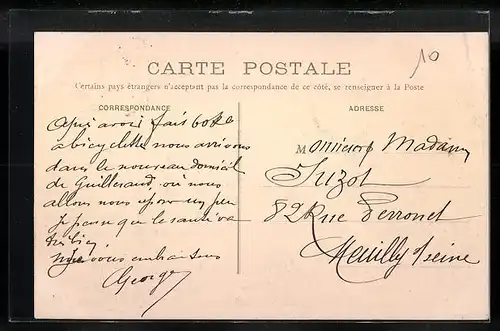 10
CARTE POSTALE
Certains pays étrangers n'acceptant pas la correspondance de ce côté, se renseigner à la Poste
CORRESPONDANCE
ADRESSE
Après avoir fait 60 K
a bicyclette nous arrivons
dans le nouveau domicil
de Guillerand, ou nous
allons nous reposer un peu
Je pense que la santé va
très bien
vous embrassons
Georges
Monsieur Madame
Suzot
82 Rue Perronet
Neuilly s/ seine